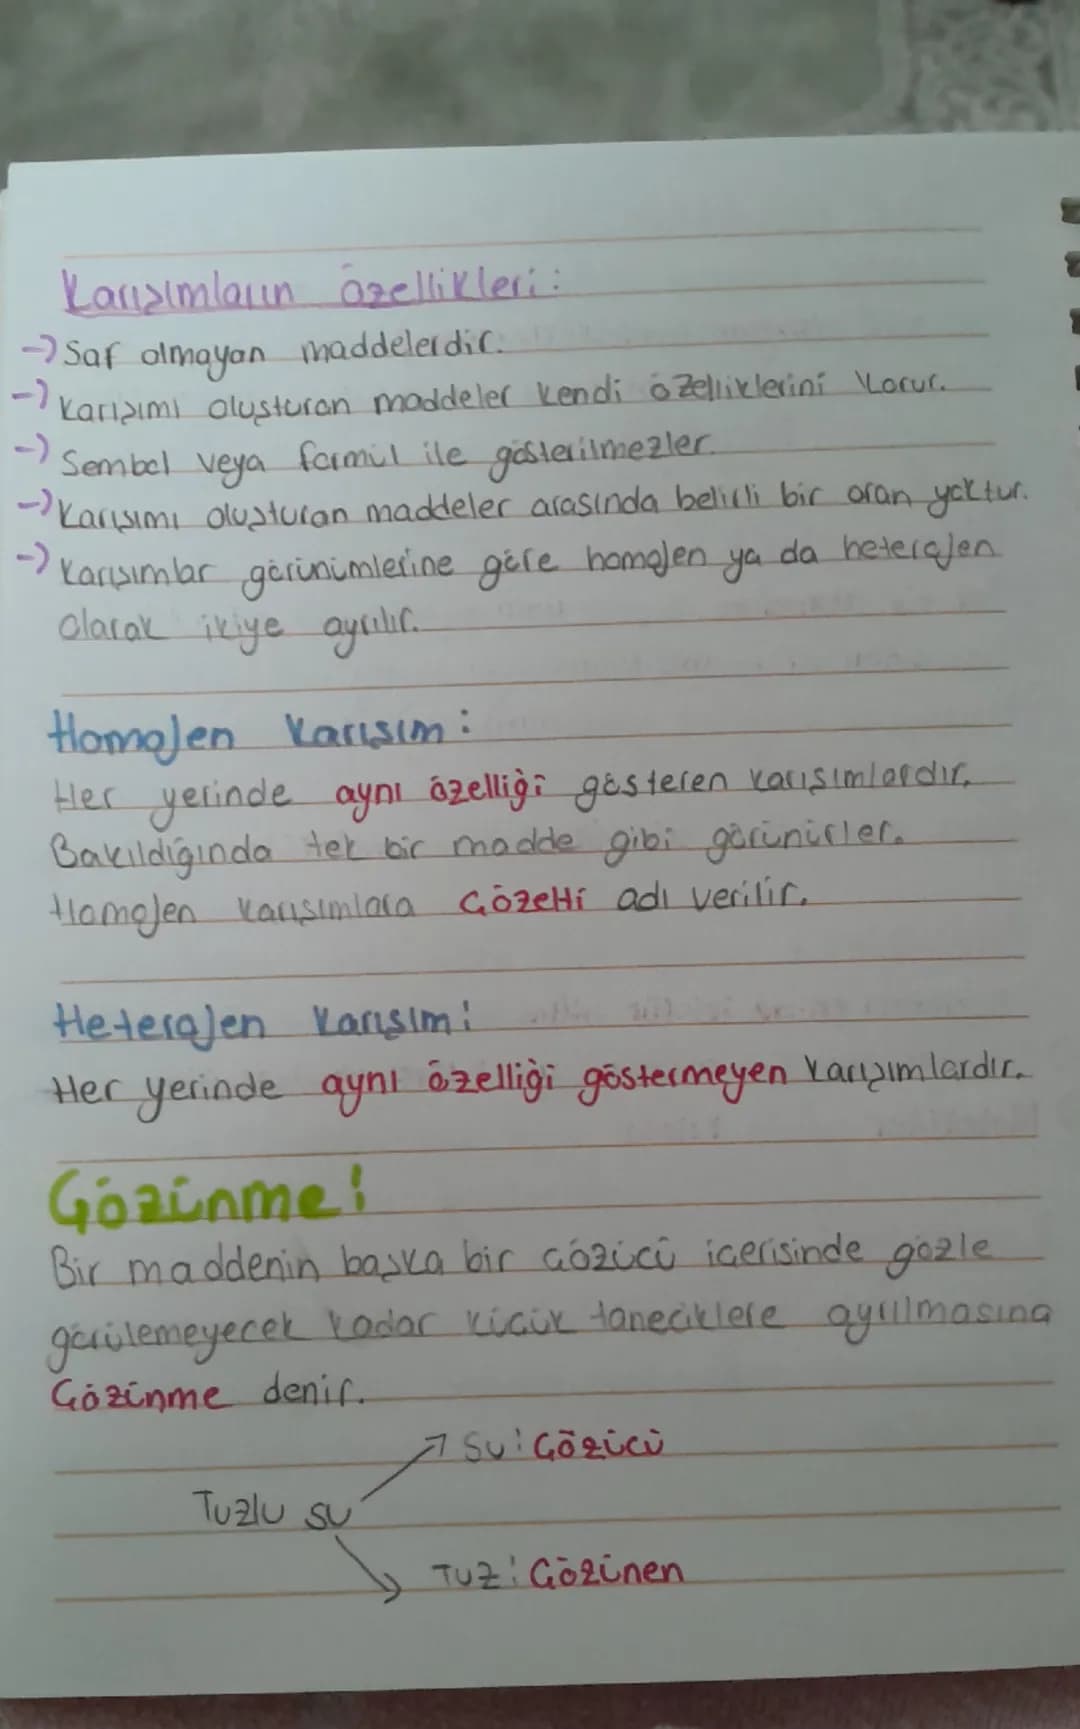 Karışımların özellikleri:
→ Saf olmayan maddelerdir.
→ Karışımı oluşturan maddeler kendi özelliklerini korur.
→ Sembol veya formül ile gösterilmezler.
→ Karışımı oluşturan maddeler arasında belirli bir oran yoktur.
→ Karışımlar görünümlerine göre homojen ya da heterojen
olarak ikiye ayrılır.
Homojen Karışım:
Her yerinde aynı özelliği gösteren karışımlardır.
Bakıldığında tek bir madde gibi görünürler.
Homojen karışımlara Çözelti adı verilir.
Heterojen Karışım:
Her yerinde aynı özelliği göstermeyen karışımlardır.
Çözünme:
Bir maddenin başka bir çözücü içerisinde gözle
görülemeyecek kadar küçük taneciklere ayrılmasına
Çözünme denir.
Su: Çözücü
Tuzlu su
Tuz: Çözünen